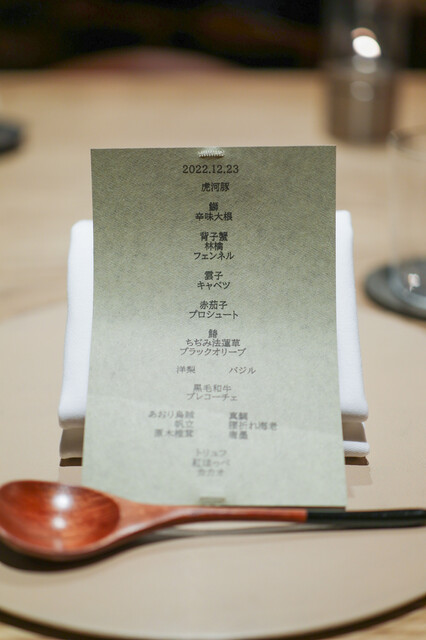 2022.12.23
虎河豚
鰤
辛味大根
背子蟹
林檎
フェンネル
雲子
キャベツ
赤茄子
プロシュート
鰆
ちぢみ法蓮草
ブラックオリーブ
洋梨 バジル
黒毛和牛
プレコーチェ
あおり烏賊 真鯛
帆立 腰折れ海老
原木椎茸 唐墨
トリュフ